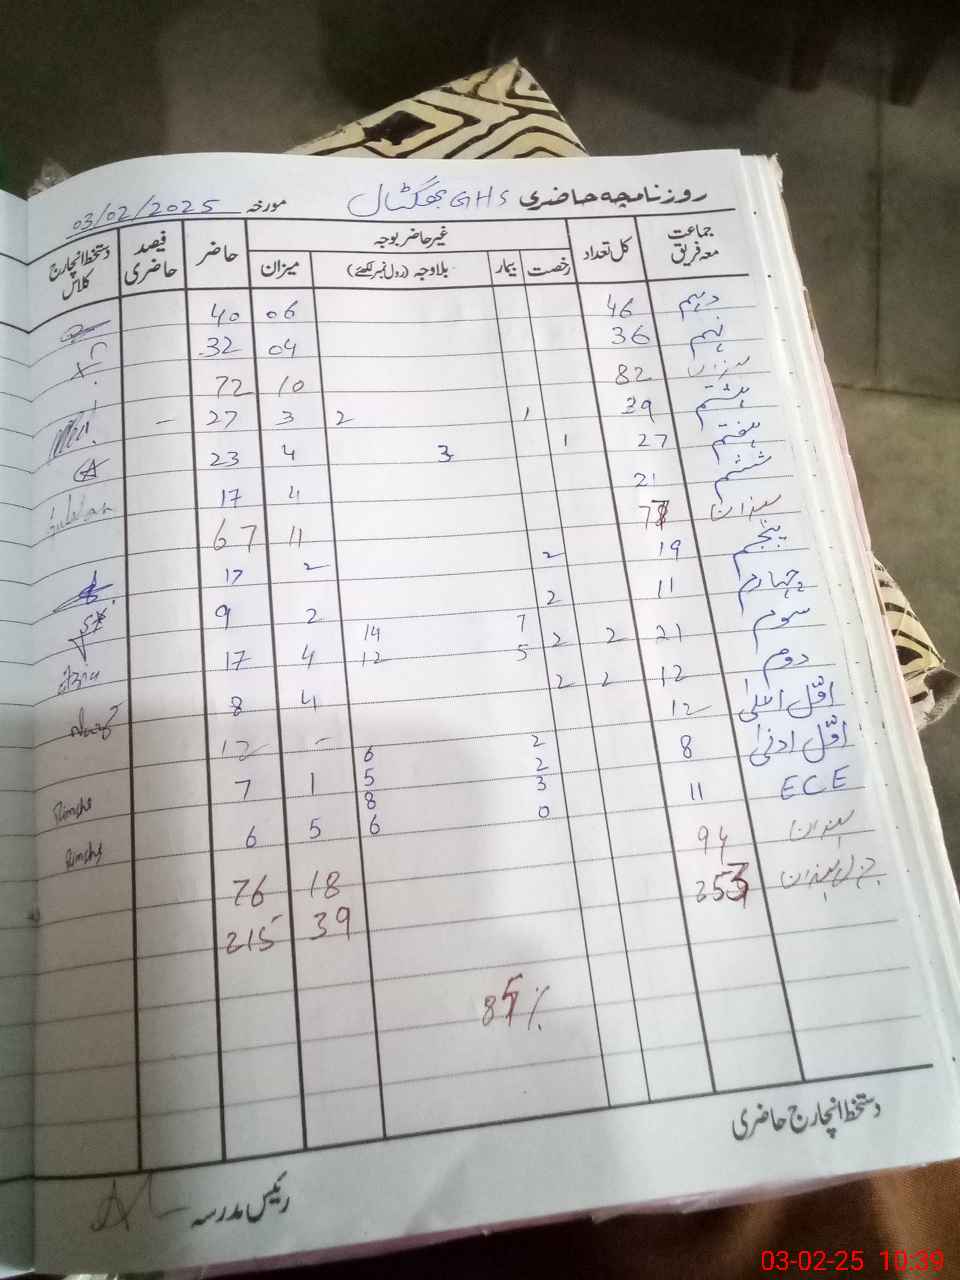 روزنامچہ حاضری GHS بھگٹال مورخہ 03/02/2025
جماعت معہ فریق کل تعداد غیر حاضر بوجہ حاضر فیصد حاضری دستخط انچارج کلاس
رخصت بیمار بلاوجہ (رول نمبر لکھئے) میزان
دہم 46 06 40
نہم 36 04 32
میزان 82 10 72
ہشتم 39 1 2 3 27 -
ہفتم 27 1 3 4 23
ششم 21 4 17
میزان 77 11 67
پنجم 19 2 2 17
چہارم 11 2 2 9
سوم 21 2 2 7 5 14 12 4 17
دوم 12 2 2 4 8
اوّل اعلیٰ 12 - 12
اوّل ادنیٰ 8 2 2 6 5 1 7
ECE 11 3 0 8 6 5 6
میزان 94 18 76
جنرل میزان 253 39 215
85%
دستخط انچارج حاضری
رئیس مدرسہ
03-02-25 10:39